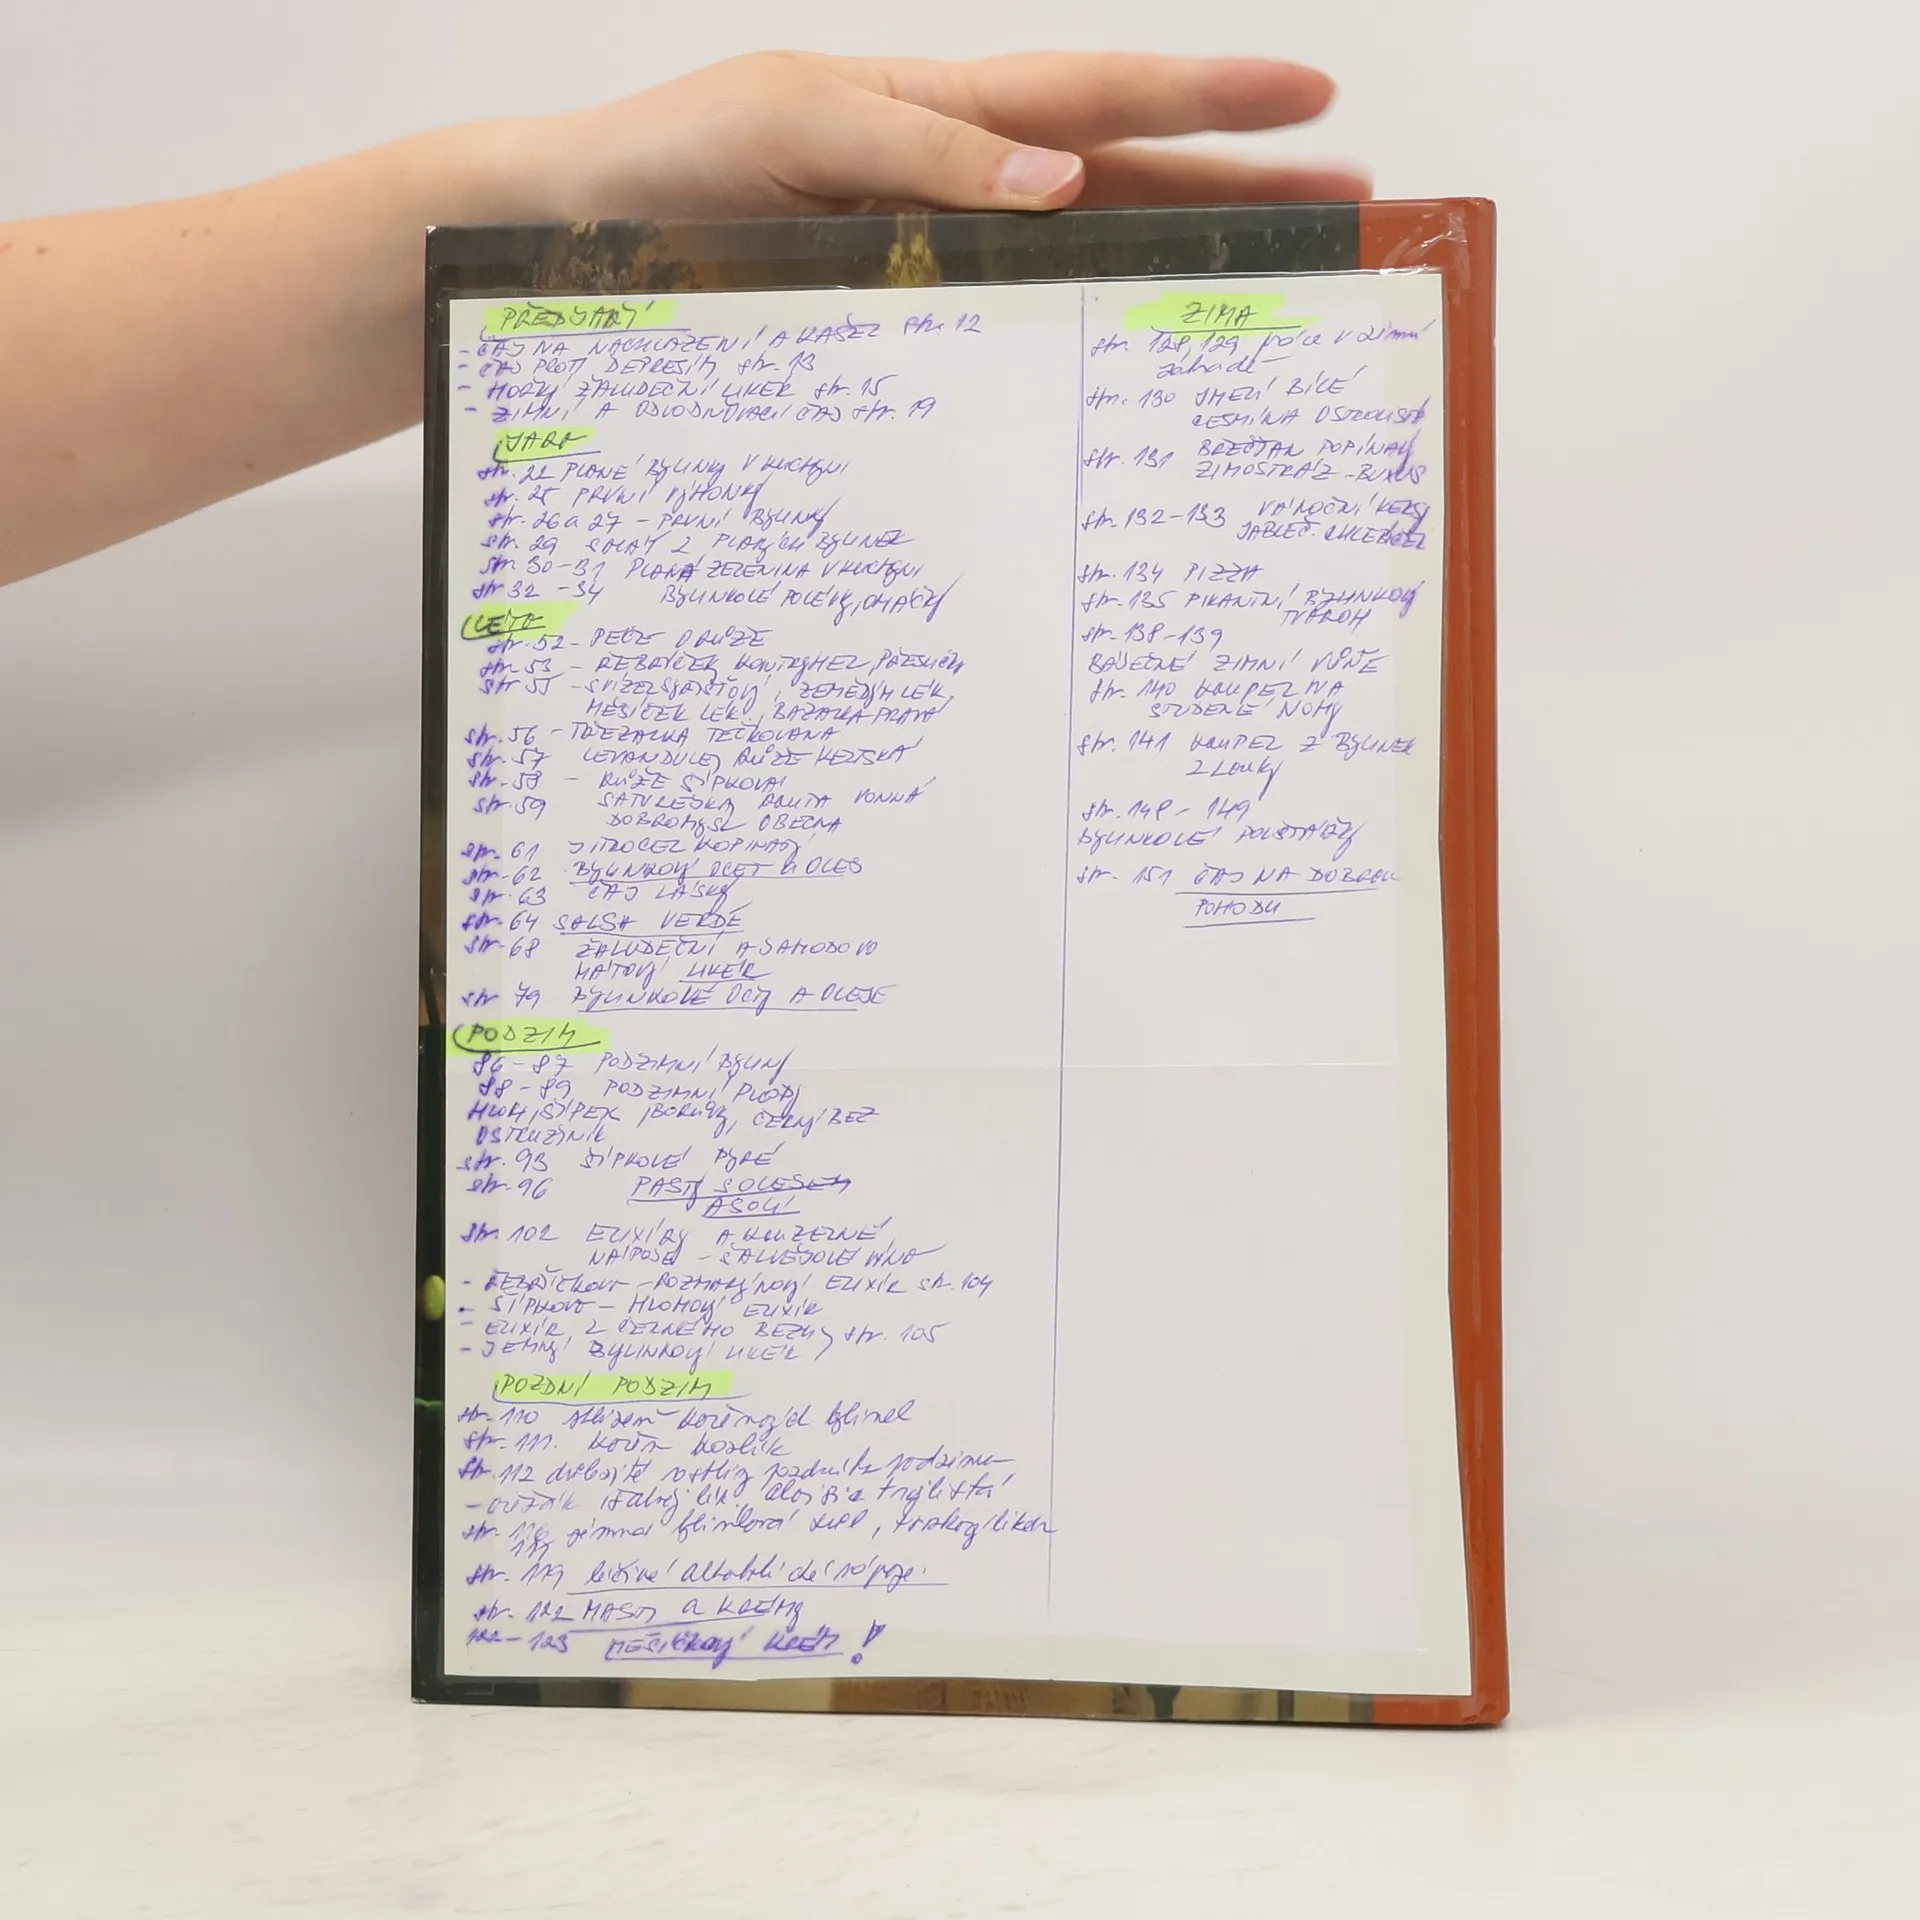 PŘEDJAŘÍ
- ČAJ NA NACHLAZENÍ A KAŠEL str. 12
- ČAJ PROTI DEPRESÍM str. 13
- HOŘKÝ ŽALUDEČNÍ LIKÉR str. 15
- ZIMNÍ A ODVODŇOVACÍ ČAJ str. 19
JARO
str. 22 PLANÉ BYLINKY V KUCHYNI
str. 25 PRVNÍ VÝHONKY
str. 26 a 27 - PRVNÍ BYLINKY
str. 29 SALÁT Z PLANÝCH BYLINEK
str. 30-31 PLANÁ ZELENINA V KUCHYNI
str 32 - 34 BYLINKOVÉ POLÉVKY, OMÁČKY
LÉTO
str. 52 - PÉČE O RŮŽE
str. 53 - ŘEBŘÍČEK, KONTRYHEL, PŘESLIČKY
str 55 - SVÍZEL SYŘIŠŤOVÝ, ZEMĚDÝM LÉK,
MĚSÍČEK LÉK., BAZALKA PRAVÁ
str. 56 - TŘEZALKA TEČKOVANÁ
str. 57 LEVANDULE, RŮŽE KELTSKÁ
str. 58 - RŮŽE ŠÍPKOVÁ
str. 59 SATUREJKA, ROUTA VONNÁ
DOBROMYSL OBECNÁ
str. 61 JITROCEL KOPINATÝ
str. 62 BYLINKOVÝ OCET A OLEJ
str. 63 ČAJ LÁSKY
str. 64 SALSA VERDE
str. 68 ŽALUDEČNÍ A JAHODOVO
MÁTOVÝ LIKÉR
str 79 BYLINKOVÉ OCTY A OLEJE
PODZIM
86 - 87 PODZIMNÍ BYLINY
88 - 89 PODZIMNÍ PLODY
HLOH, ŠÍPEK, BORŮVKY, ČERNÝ BEZ
OSTRUŽINÍK
str. 93 ŠÍPKOVÉ PYRÉ
str. 96 PASTY S OLEJEM
A SOLÍ
str. 102 ELIXÍRY A KOUZELNÉ
NÁPOJE - ŠALVĚJOVÉ VÍNO
- ŘEBŘÍČKOVO - ROZMARÝNOVÝ ELIXÍR str. 104
- ŠÍPKOVO - HLOHOVÝ ELIXÍR
- ELIXÍR Z ČERNÉHO BEZU, str. 105
- JEMNÝ BYLINKOVÝ LIKÉR
POZDNÍ PODZIM
str. 110 sklizeň kořenových bylinek
str. 111. kořen kozlík
str. 112 důležité rostliny pozdního podzimu
- lék., aloisie trojlistá
str. 116 zimní bylinková
117
str. 119 léčivé alkoholické nápoje.
str. 122 MASTI a KRÉMY
122-123 MĚSÍČKOVÝ KRÉM!
ZIMA
str. 128, 129 práce v zimní
zahradě
str. 130 JMELÍ BÍLÉ
CESMÍNA OSTROLISTÁ
str. 131 BŘEČŤAN POPÍNAVÝ
ZIMOSTRÁZ - BUXUS
str. 132-133 VÁNOČNÍ KEKSY
JABLEČ. CHLEBÍČEK
str. 134 PIZZA
str. 135 PIKANTNÍ BYLINKOVÝ
TVAROH
str. 138-139
BÁJEČNÉ ZIMNÍ VŮNĚ
str. 140 KOUPEL NA
STUDENÉ NOHY
str. 141 KOUPEL Z BYLINEK
Z LOUKY
str. 148 - 149
BYLINKOVÉ POLŠTÁŘKY
str. 151 ČAJ NA DOBROU
POHODU